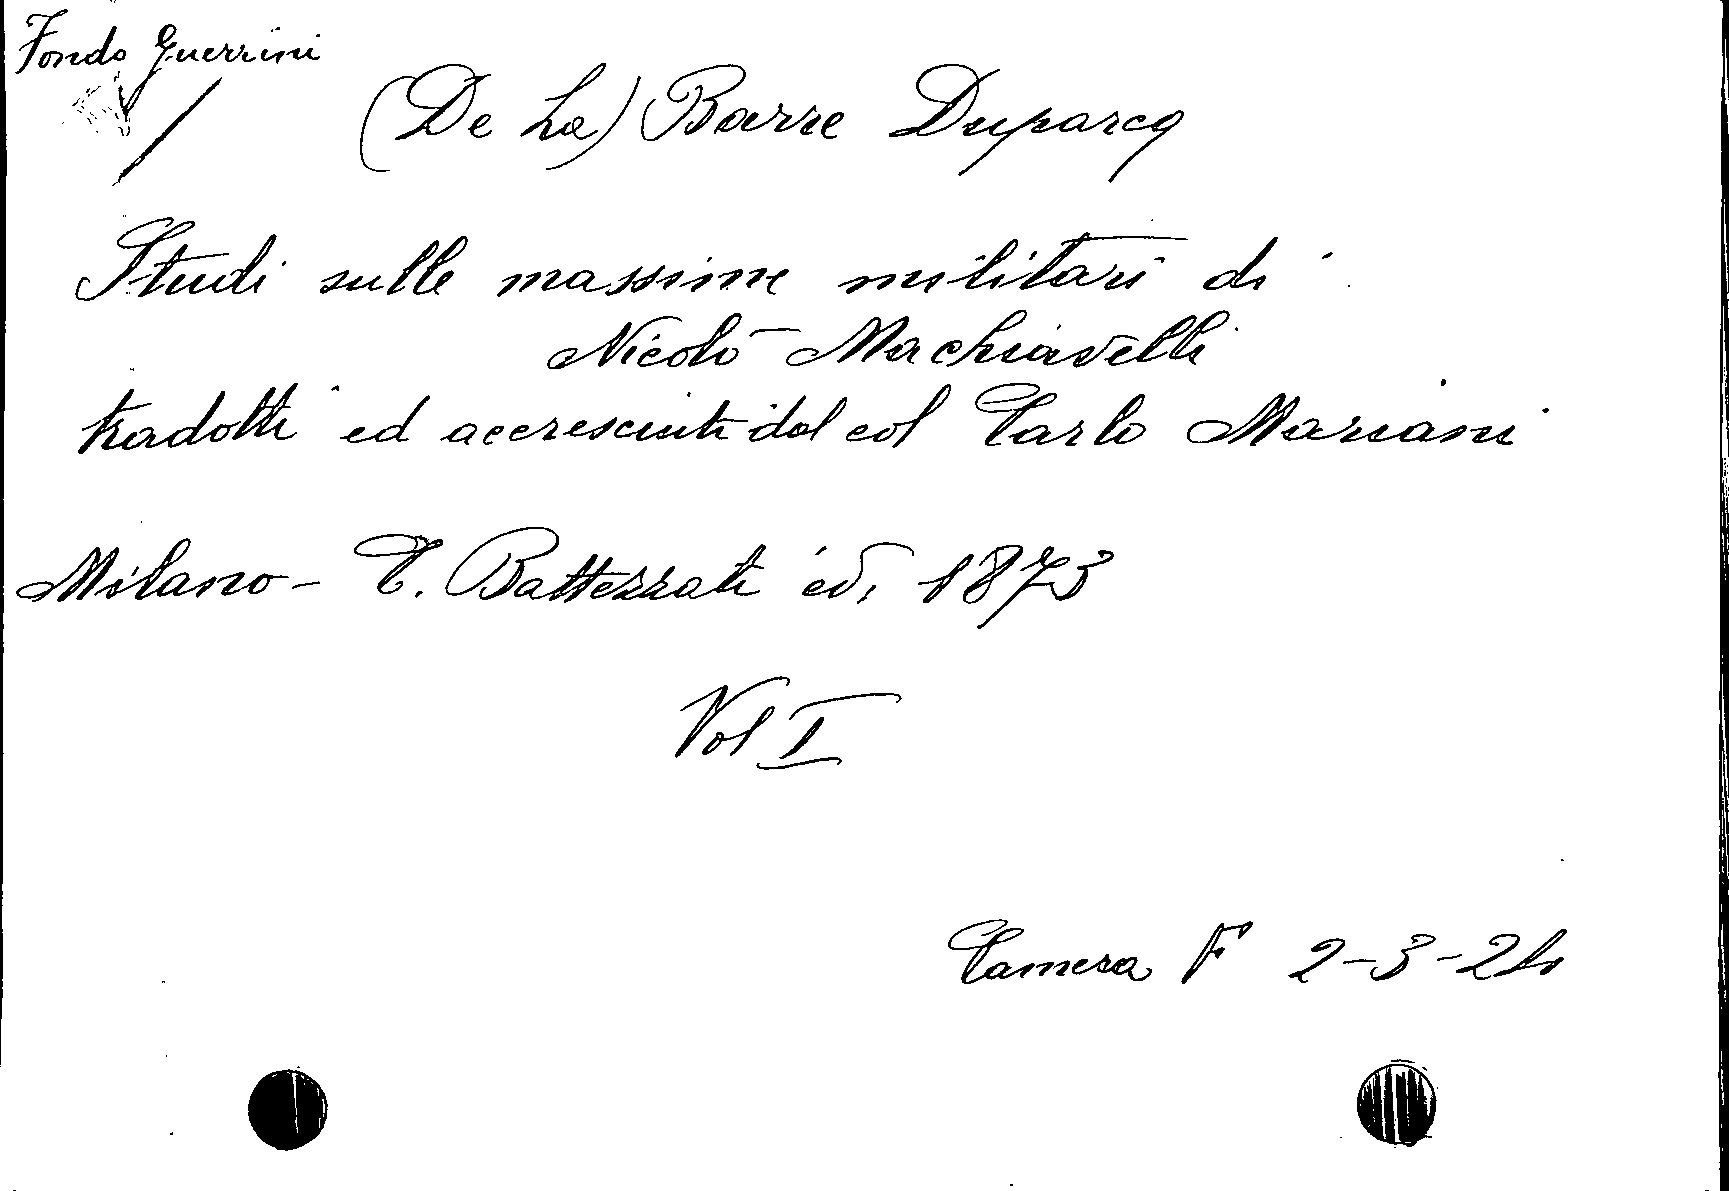 Fondo Guerrini
(De La) Barre Duparcq
Studi sulle massime militari di
Nicolò Machiavelli
tradotti ed accresciuti dal col Carlo Mariani
Milano - C. Battezzati ed. 1873
Vol I
Camera F 2-3-24